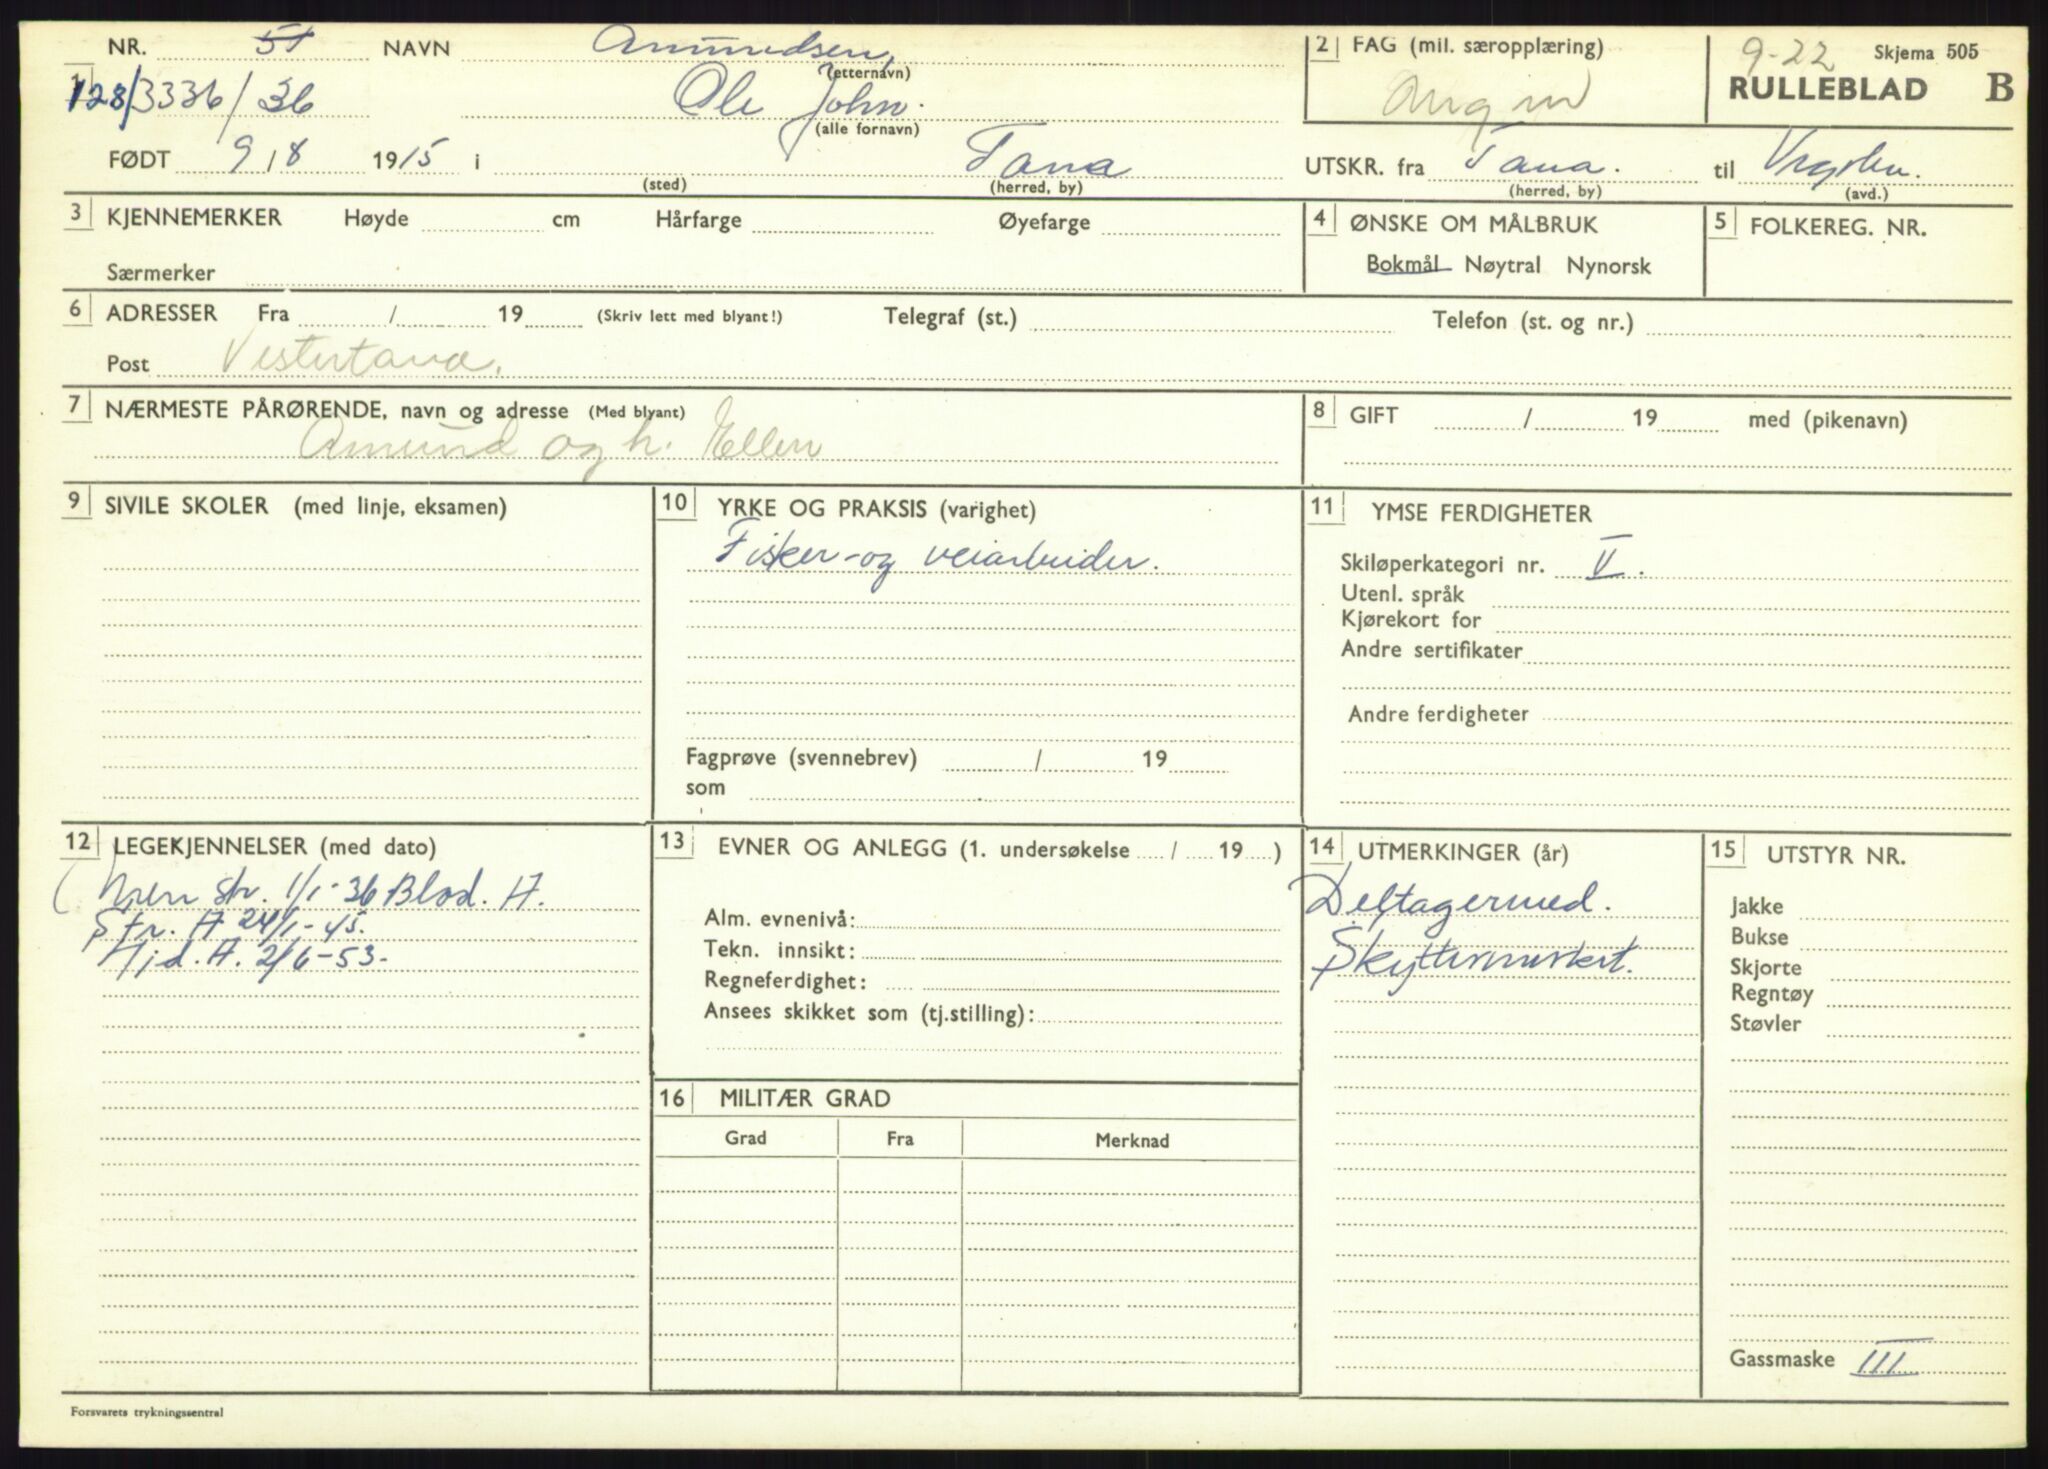 NR. 51 NAVN Amundsen,
(etternavn)
1 128/3336/36 Ole John.
(alle fornavn)
FØDT 9/8 1915 i Tana
(sted) (herred, by)
2 FAG (mil. særopplæring)
9-22 Skjema 505
RULLEBLAD B
UTSKR. fra Tana. til
(herred, by) (avd.)
3 KJENNEMERKER Høyde cm Hårfarge Øyefarge
Særmerker
4 ØNSKE OM MÅLBRUK
Bokmål Nøytral Nynorsk
5 FOLKEREG. NR.
6 ADRESSER Fra / 19 (Skriv lett med blyant!) Telegraf (st.) Telefon (st. og nr.)
Post Vestertana.
7 NÆRMESTE PÅRØRENDE, navn og adresse (Med blyant)
Amund og h. Ellen
8 GIFT / 19 med (pikenavn)
9 SIVILE SKOLER (med linje, eksamen)
10 YRKE OG PRAKSIS (varighet)
Fisker- og veiarbeider.
Fagprøve (svennebrev) / 19
som
11 YMSE FERDIGHETER
Skiløperkategori nr. V.
Utenl. språk
Kjørekort for
Andre sertifikater
Andre ferdigheter
12 LEGEKJENNELSER (med dato)
str. 1/1-36 Blad. A.
Str. A 24/1-45.
Hjd. A. 2/6-53-
13 EVNER OG ANLEGG (1. undersøkelse / 19 )
Alm. evnenivå:
Tekn. innsikt:
Regneferdighet:
Ansees skikket som (tj.stilling):
14 UTMERKINGER (år)
Deltagermed.
Skyttermerket.
15 UTSTYR NR.
Jakke
Bukse
Skjorte
Regntøy
Støvler
Gassmaske III
16 MILITÆR GRAD
Grad Fra Merknad
Forsvarets trykningssentral